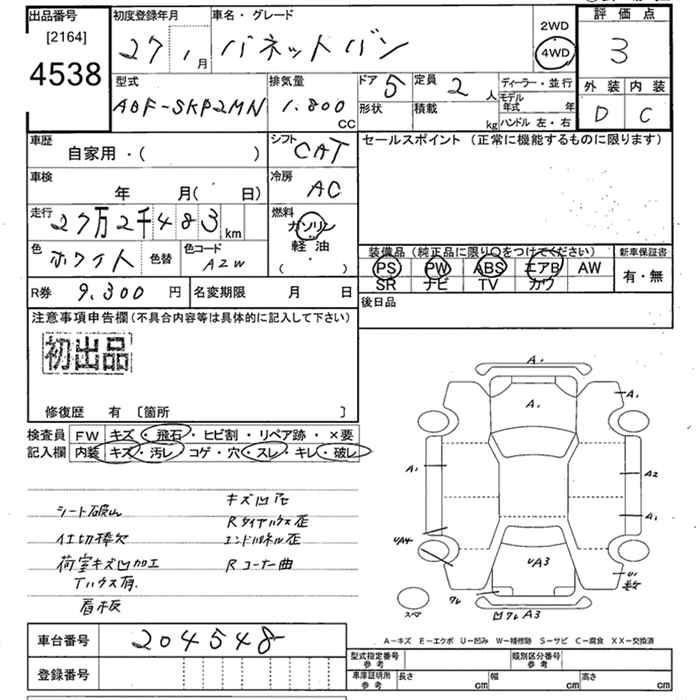 出品番号
[2164]
4538
初度登録年月
27年 1月
車名・グレード
バネットバン
2WD
4WD
評価点
3
型式
ABF-SKP2MN
排気量
1.800
CC
ドア
5
形状
定員
2人
積載
kg
ディーラー・並行
モデル年式 年
ハンドル 左・右
外装
D
内装
C
車歴
自家用・( )
シフト
CAT
セールスポイント (正常に機能するものに限ります)
車検
年 月( 日)
冷房
AC
走行
27万2千483km
燃料
ガソリン
軽油
( ・ )
色
ホワイト
色替
色コード
A2W
装備品 (純正品に限り〇をつけてください)
PS PW ABS エアB AW
SR ナビ TV カワ
新車保証書
有・無
R券
9.300円
名変期限 月 日
後日品
注意事項申告欄(不具合内容等は具体的に記入して下さい)
初出品
修復歴 有 〔箇所 〕
検査員
記入欄
FW キズ・飛石・ヒビ割・リペア跡・×要
内装 キズ・汚レ・コゲ・穴・スレ・キレ・破レ
シート破れ
仕切棒欠
荷室キズ凹加工
Tハウス有.
看板
キズ凹圧
Rタイヤハウス歪
エンドパネル歪
Rコーナー曲
A.
A.
A.
A.
A2
A.
UA4
UA3
U.
ワレ
凹ワレ A3
スペア
A-キズ E-エクボ U-凹み W-補修跡 S-サビ C-腐食 XX-交換済
車台番号
204548
登録番号
型式指定番号
参考
類別区分番号
参考
車庫証明所
参考
長さ cm
幅 cm
高さ cm